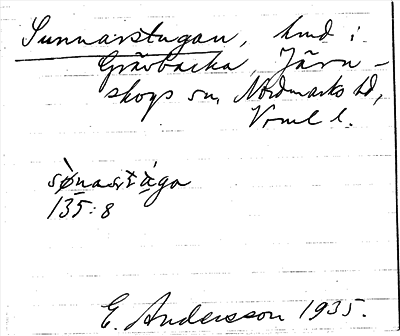 Sunnarstugan, hmd i
Gräsbacka, Järn-
skogs sn, Nordmarks hd,
Vrml l.
sø̀nastá̀ga
135:8
E. Andersson 1935.